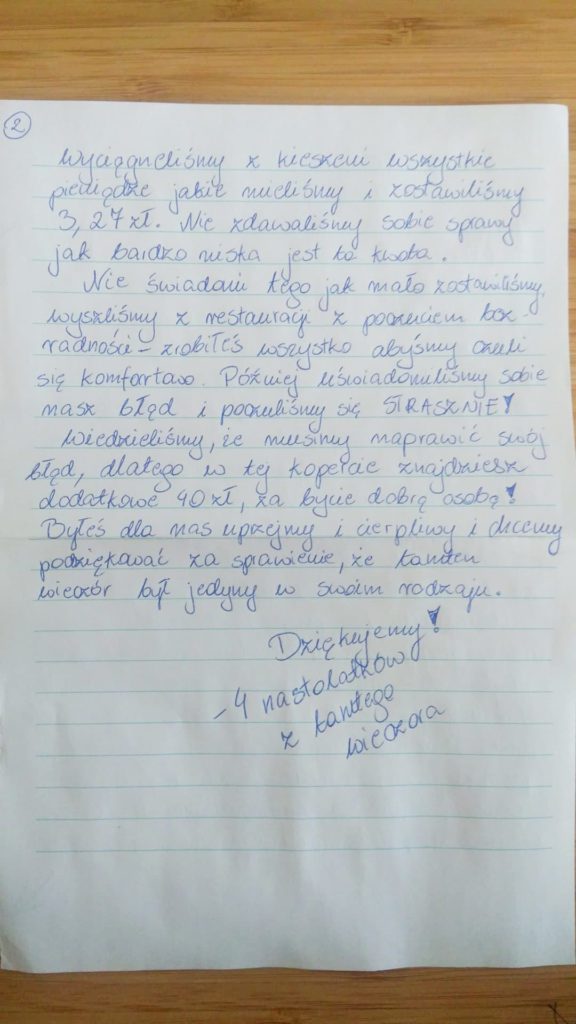 2
Wyciągneliśmy z kieszeni wszystkie
pieniądze jakie mieliśmy i zostawiliśmy
3,27 zł. Nie zdawaliśmy sobie sprawy
jak bardzo niska jest ta kwota.
Nie świadomi tego jak mało zostawiliśmy,
wyszliśmy z restauracji z poczuciem bez-
radności - zrobiłeś wszystko abyśmy czuli
się komfortowo. Później uświadomiliśmy sobie
nasz błąd i poczuliśmy się STRASZNIE!
Wiedzieliśmy, że musimy naprawić swój
błąd, dlatego w tej kopercie znajdziesz
dodatkowe 40 zł, za bycie dobrą osobą!
Byłeś dla nas uprzejmy i cierpliwy i chcemy
podziękować za sprawienie, że tamten
wieczór był jedyny w swoim rodzaju.
Dziękujemy!
- 4 nastolatków
z tamtego
wieczora